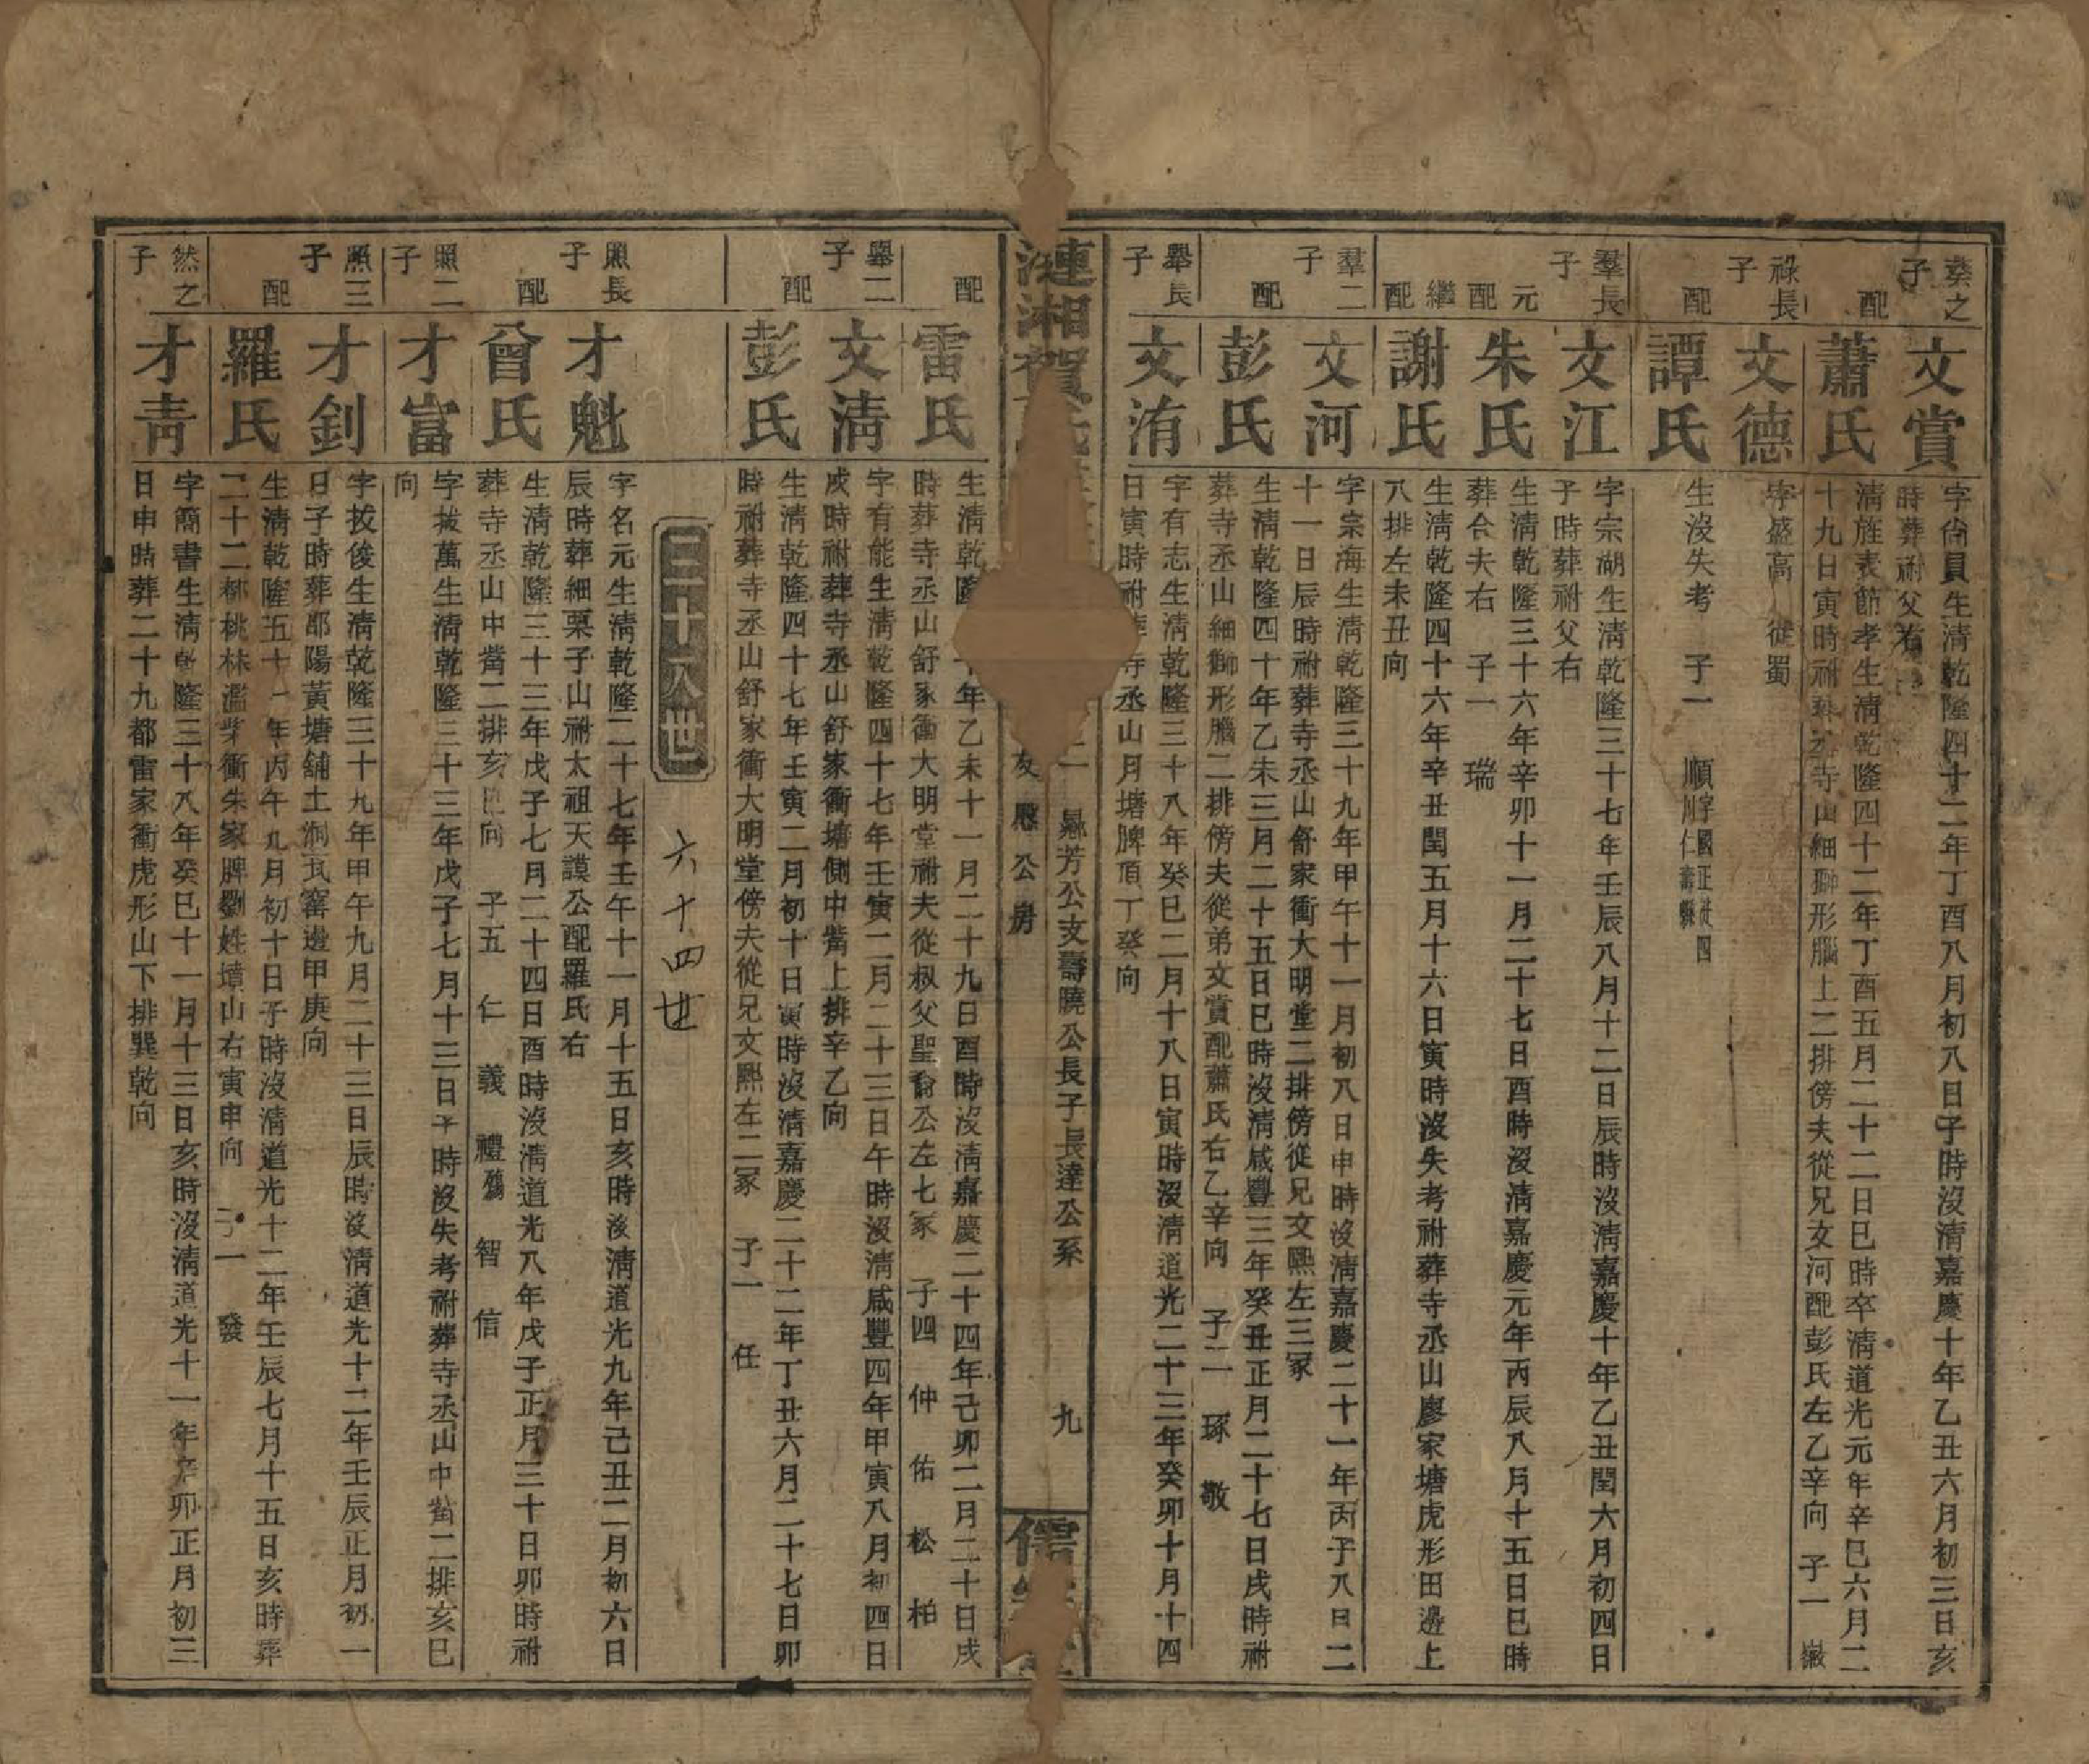 葵之子
文賞
字尙員生淸乾隆四十二年丁酉八月初八日子時沒淸嘉慶十年乙丑六月初三日亥
時葬祔父右
配
蕭氏
淸旌表節孝生淸乾隆四十二年丁酉五月二十二日巳時卒淸道光元年辛巳六月二
十九日寅時祔葬寺山細獅形腦上二排傍夫從兄文河配彭氏左乙辛向 子一 嶽
祿長子
文德
字盛高 從蜀
配
譚氏
生沒失考 子一 順 字國正從四川仁壽縣
羣長子
文江
字宗湖生淸乾隆三十七年壬辰八月十二日辰時沒淸嘉慶十年乙丑閏六月初四日
子時葬祔父右
元配
朱氏
生淸乾隆三十六年辛卯十一月二十七日酉時沒淸嘉慶元年丙辰八月十五日巳時
葬合夫右 子一 瑞
繼配
謝氏
生淸乾隆四十六年辛丑閏五月十六日寅時沒失考祔葬寺丞山廖家塘虎形田邊上
八排左未丑向
羣二子
文河
字宗海生淸乾隆三十九年甲午十一月初八日申時沒淸嘉慶二十一年丙子八日二
十一日辰時祔葬寺丞山舒家衝大明堂二排傍從兄文熙左三冢
配
彭氏
生淸乾隆四十年乙未三月二十五日巳時沒淸咸豐三年癸丑正月二十七日戌時祔
葬寺丞山細獅形腦二排傍夫從弟文賞配蕭氏右乙辛向 子二 琢 敬
舉長子
文洧
字有志生淸乾隆三十八年癸巳二月十八日寅時沒淸道光二十三年癸卯十月十四
日寅時祔寺丞山月塘脾頂丁癸向
漣湘賀
鼎芳公支壽曉公長子長達公系 九
友應公房
儒
配
雷氏
生淸乾隆十年乙未十一月二十九日酉時沒淸嘉慶二十四年己卯二月二十日戌
時葬寺丞山舒家衝大明堂祔夫從叔父聖裔公左七冢 子四 仲 佑 松 柏
舉二子
文淸
字有能生淸乾隆四十七年壬寅二月二十三日午時沒淸咸豐四年甲寅八月初四日
戌時祔葬寺丞山舒家衝塘側中嘴上排辛乙向
配
彭氏
生淸乾隆四十七年壬寅二月初十日寅時沒淸嘉慶二十二年丁丑六月二十七日卯
時祔葬寺丞山舒家衝大明堂傍夫從兄文熙左二冢 子一 任
三十八世
六十四世
照長子
才魁
字名元生淸乾隆二十七年壬午十一月十五日亥時沒淸道光九年己丑二月初六日
辰時葬細栗子山祔太祖天謨公配羅氏右
配
曾氏
生淸乾隆三十三年戊子七月二十四日酉時沒淸道光八年戊子正月三十日卯時祔
葬寺丞山中嘴二排亥巳向 子五 仁 義 禮殤 智 信
照二子
才富
字拔萬生淸乾隆三十三年戊子七月十三日子時沒失考祔葬寺丞山中嘴二排亥巳
向
照三子
才釗
字拔俊生淸乾隆三十九年甲午九月二十三日辰時沒淸道光十二年壬辰正月初一
日子時葬邵陽黃塘舖土洞瓦窰邊甲庚向
配
羅氏
生淸乾隆五十一年丙午九月初十日子時沒淸道光十二年壬辰七月十五日亥時葬
二十二都桃林濫柴衝朱家脾劉姓墇山右寅申向 子一 發
然之子
才靑
字簡書生淸乾隆三十八年癸巳十一月十三日亥時沒淸道光十一年辛卯正月初三
日申時葬二十九都雷家衝虎形山下排巽乾向